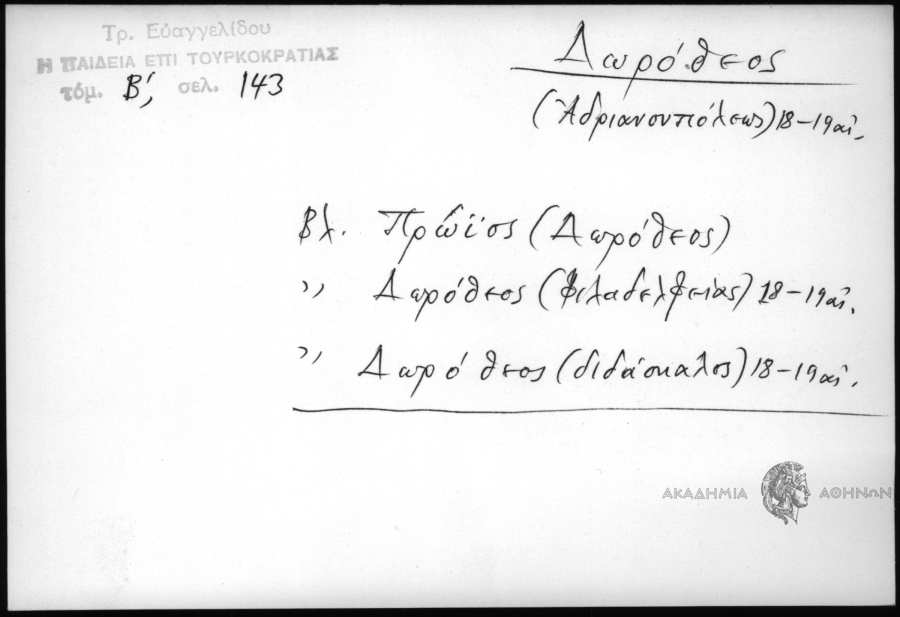 Τρ. Εὐαγγελίδου
Η ΠΑΙΔΕΙΑ ΕΠΙ ΤΟΥΡΚΟΚΡΑΤΙΑΣ
τόμ. Β΄, σελ. 143
Δωρόθεος
(Ἀδριανουπόλεως) 18-19 αἰ.
Βλ. Πρώϊος (Δωρόθεος)
,, Δωρόθεος (Φιλαδελφείας) 18-19 αἰ.
,, Δωρόθεος (διδάσκαλος) 18-19 αἰ.
ΑΚΑΔΗΜΙΑ ΑΘΗΝΩΝ